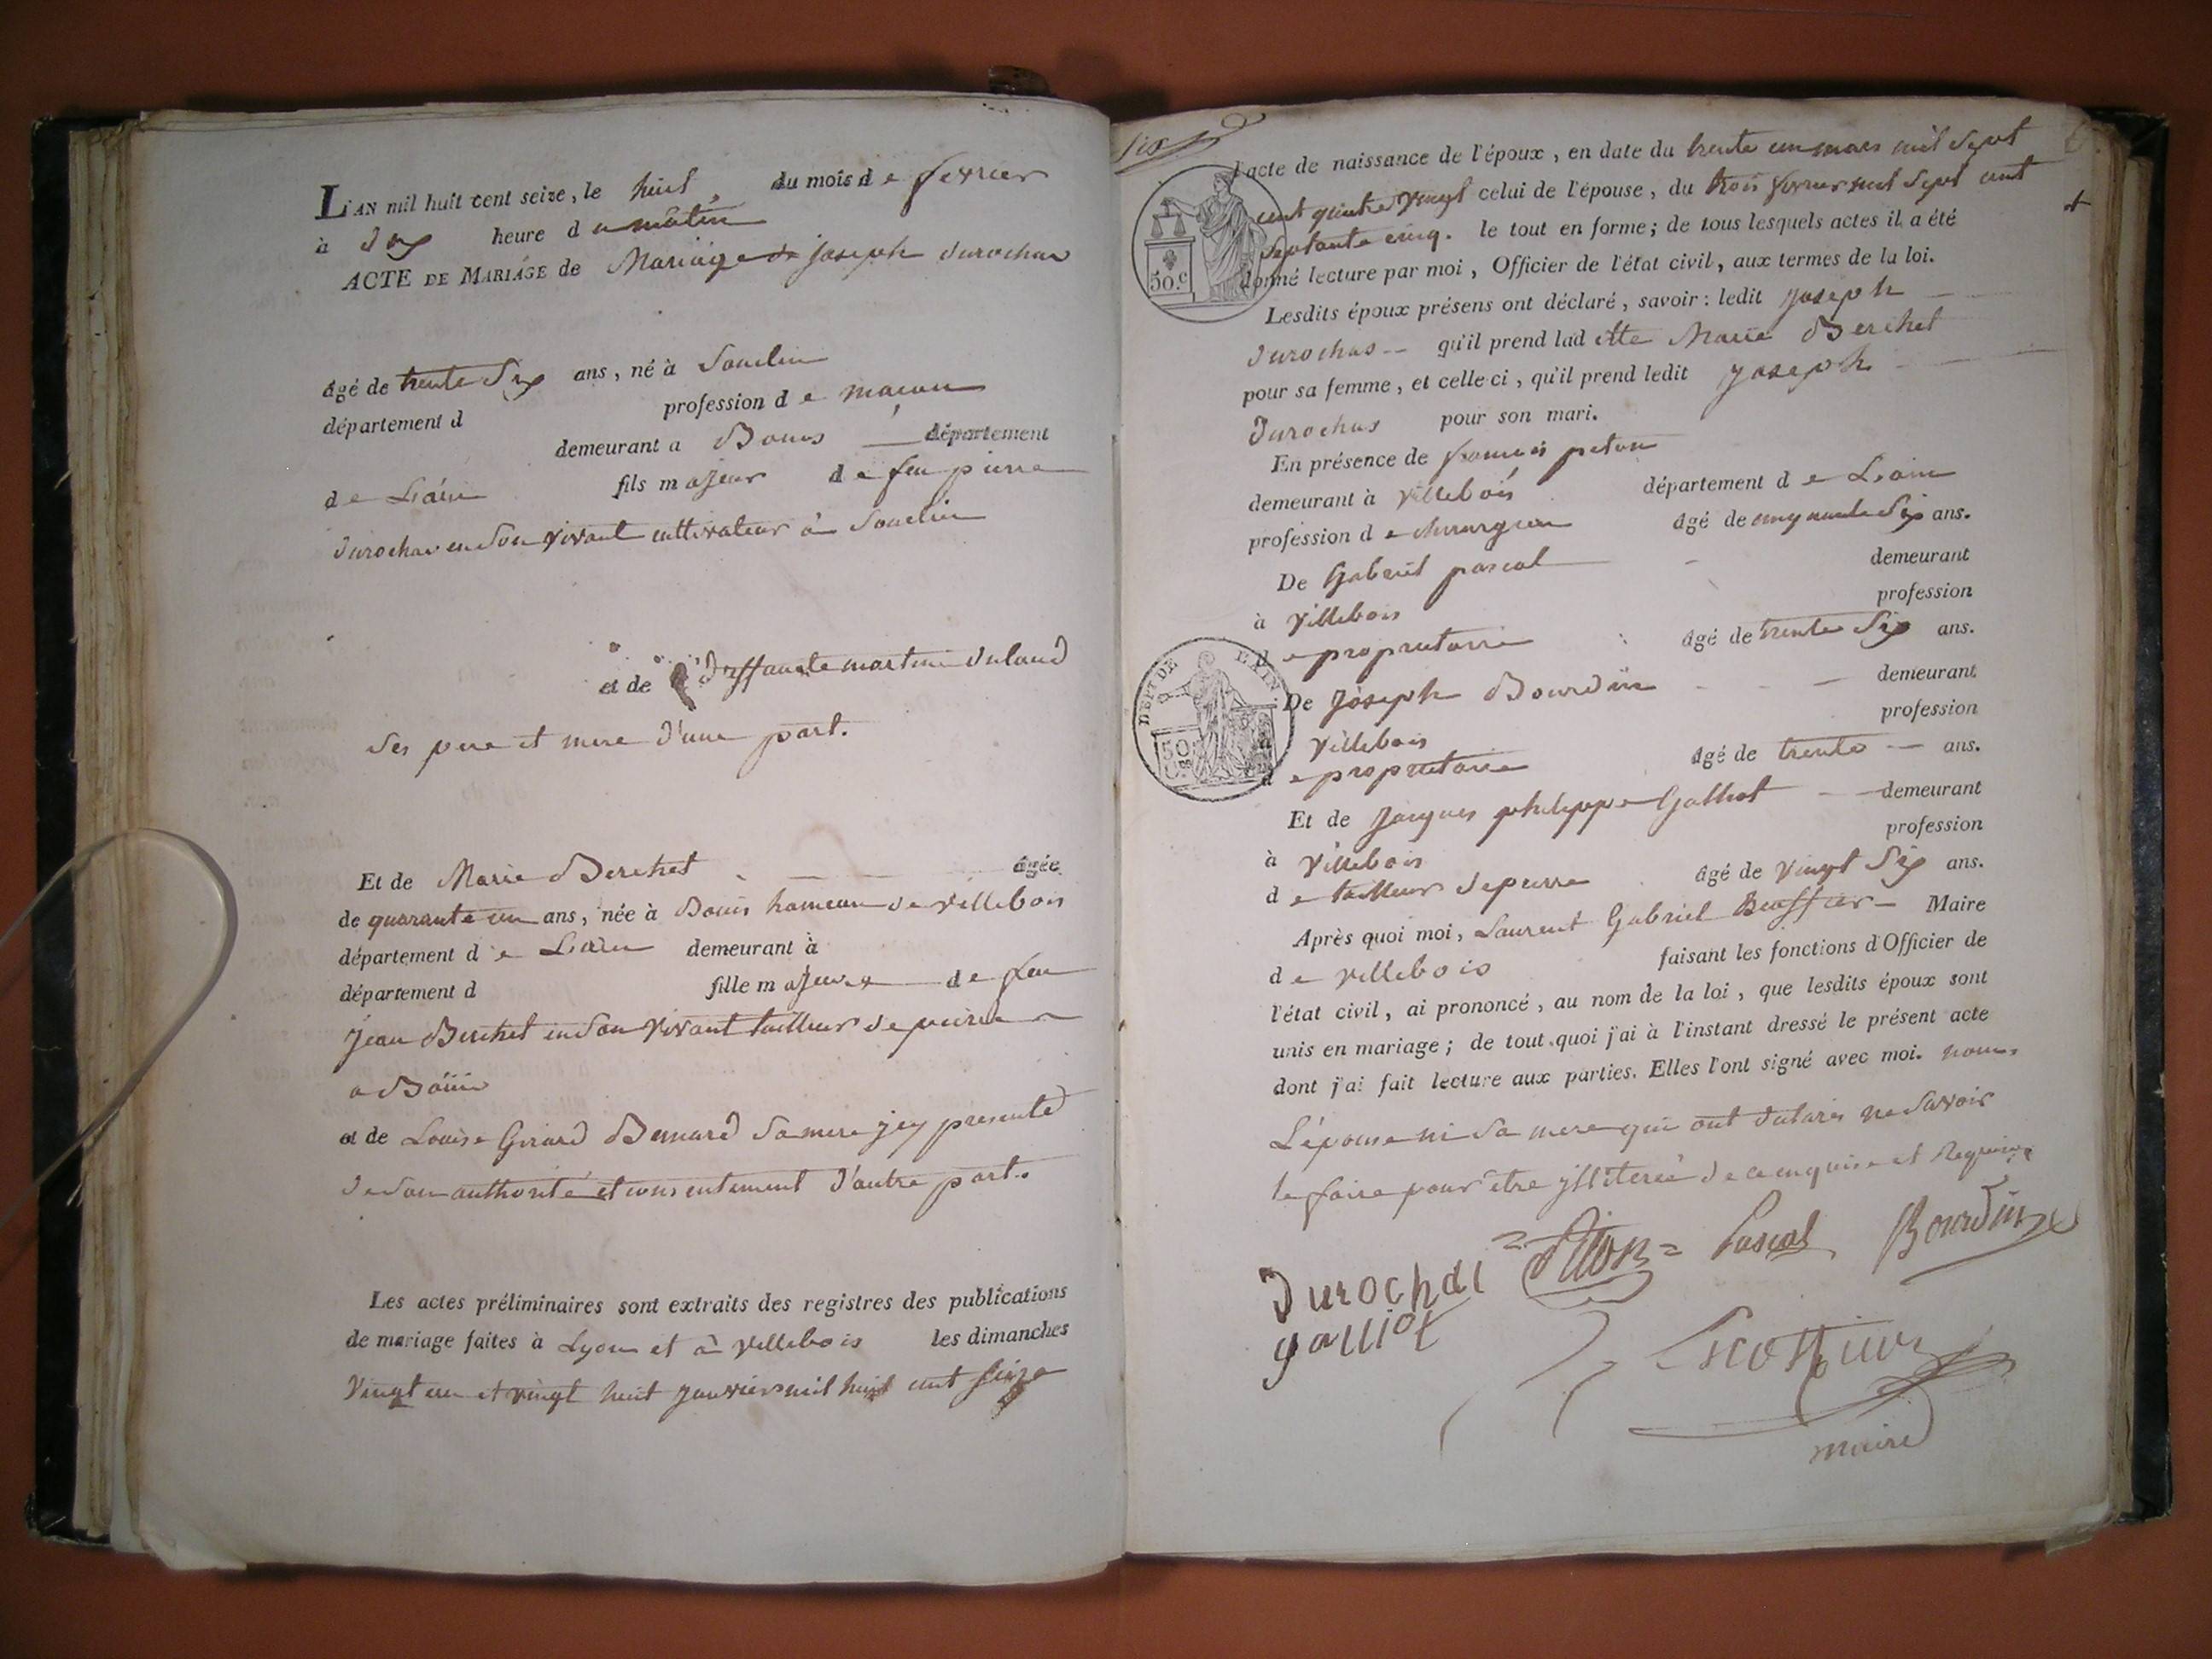 L'AN mil huit cent seize, le huit du mois de fevrier
à dix heure du matin
ACTE DE MARIAGE de Mariage de joseph durochas
âgé de trente Six ans, né à Souclin
département d profession de maçon
demeurant a Bouis département
de Lain fils majeur de feu pierre
durochas en Son vivant cultivateur à Souclin
et de deffuncte martine
Ses pere et mere d'une part.
Et de Marie Berchet âgée
de quarante un ans, née à Bouis hameau de villebois
département de Lain demeurant à
département d fille majeure de feu
Jean Berchet en Son vivant tailleur de pierre
a Bouis
et de Louise Girard Bernard Sa mere jcy presente
de Son authorité et consentement d'autre part.
Les actes préliminaires sont extraits des registres des publications
de mariage faites à Lyon et à villebois les dimanches
vingt un et vingt huit janvier mil huit cent seize
six
6.
l'acte de naissance de l'époux, en date du trente un mars mil Sept
cent quatre vingt celui de l'épouse, du trois fevrier mil Sept cent
Septante cinq. le tout en forme; de tous lesquels actes il a été
donné lecture par moi, Officier de l'état civil, aux termes de la loi.
50.c
Lesdits époux présens ont déclaré, savoir: ledit joseph
durochas qu'il prend ladette Marie Berchet
pour sa femme, et celle-ci, qu'il prend ledit joseph
durochas pour son mari.
En présence de francois peton
demeurant à villebois département de Lain
profession de chirurgien âgé de cinquante Six ans.
De Gabriel pascal demeurant
à villebois profession
de proprietaire âgé de trente Six ans.
DEPT DE L'AIN
De Joseph Bourdin demeurant
à villebois profession
de proprietaire âgé de trente ans.
50
Et de Jacques philippe Galliot demeurant
à villebois profession
de tailleur de pierre âgé de vingt Six ans.
Après quoi moi, Laurent Gabriel Maire
de villebois faisant les fonctions d'Officier de
l'état civil, ai prononcé, au nom de la loi, que lesdits époux sont
unis en mariage; de tout quoi j'ai à l'instant dressé le présent acte
dont j'ai fait lecture aux parties. Elles l'ont signé avec moi. non
L'épouse ni Sa mere qui ont declarés ne Savoir
le faire pour être jlliterée de ce enquise et Requise
durochat Pascal Bourdin
galliot
maire